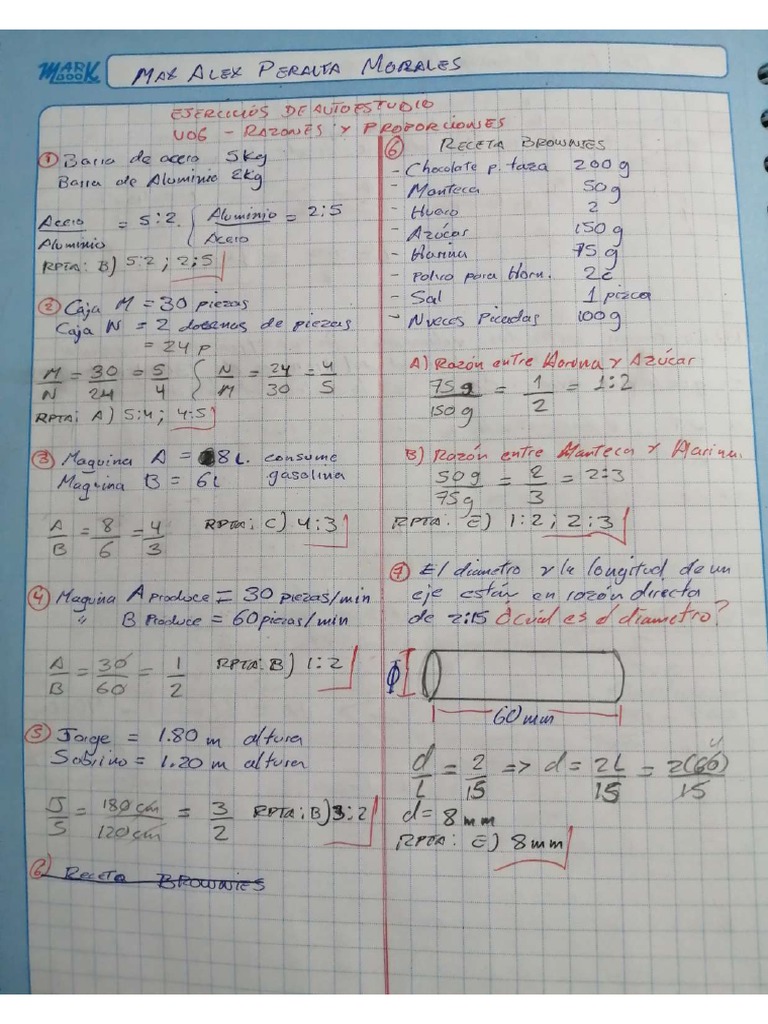 MARK BOOK
MAX ALEX PERALTA MORALES
EJERCICIOS DE AUTOESTUDIO
U06 - RAZONES Y PROPORCIONES
① Barra de acero 5Kg
Barra de Aluminio 2Kg
Acero/Aluminio = 5:2. { Aluminio/Acero = 2:5
RPTA: B) 5:2 ; 2:5
② Caja M = 30 piezas
Caja N = 2 docenas de piezas
= 24 p
M/N = 30/24 = 5/4 { N/M = 24/30 = 4/5
RPTA: A) 5:4 ; 4:5
③ Maquina A = 8L. consume
Maquina B = 6L gasolina
A/B = 8/6 = 4/3 RPTA: C) 4:3
④ Maquina A produce = 30 piezas/min
" B Produce = 60 piezas/min
A/B = 30/60 = 1/2 RPTA: B) 1:2
⑤ Jorge = 1.80 m altura
Sobrino = 1.20 m altura
J/S = 180 cm/120 cm = 3/2 RPTA: B) 3:2
⑥ RECETA BROWNIES
⑥ RECETA BROWNIES
- Chocolate p. taza 200 g
- Manteca 50 g
- Huevo 2
- Azúcar 150 g
- Harina 75 g
- Polvo para Horn. 2c
- Sal 1 pizca
- Nueces Picadas 100 g
A) Razón entre Harina y Azúcar
75 g/150 g = 1/2 = 1:2
B) Razón entre Manteca y Harina.
50 g/75 g = 2/3 = 2:3
RPTA: E) 1:2 ; 2:3
⑦ El diametro y la longitud de un
eje están en razón directa
de 2:15 ¿cuál es el diametro?
Φ
60 mm
d/L = 2/15 => d = 2L/15 = 2(60)/15 4
d = 8 mm
RPTA: E) 8 mm